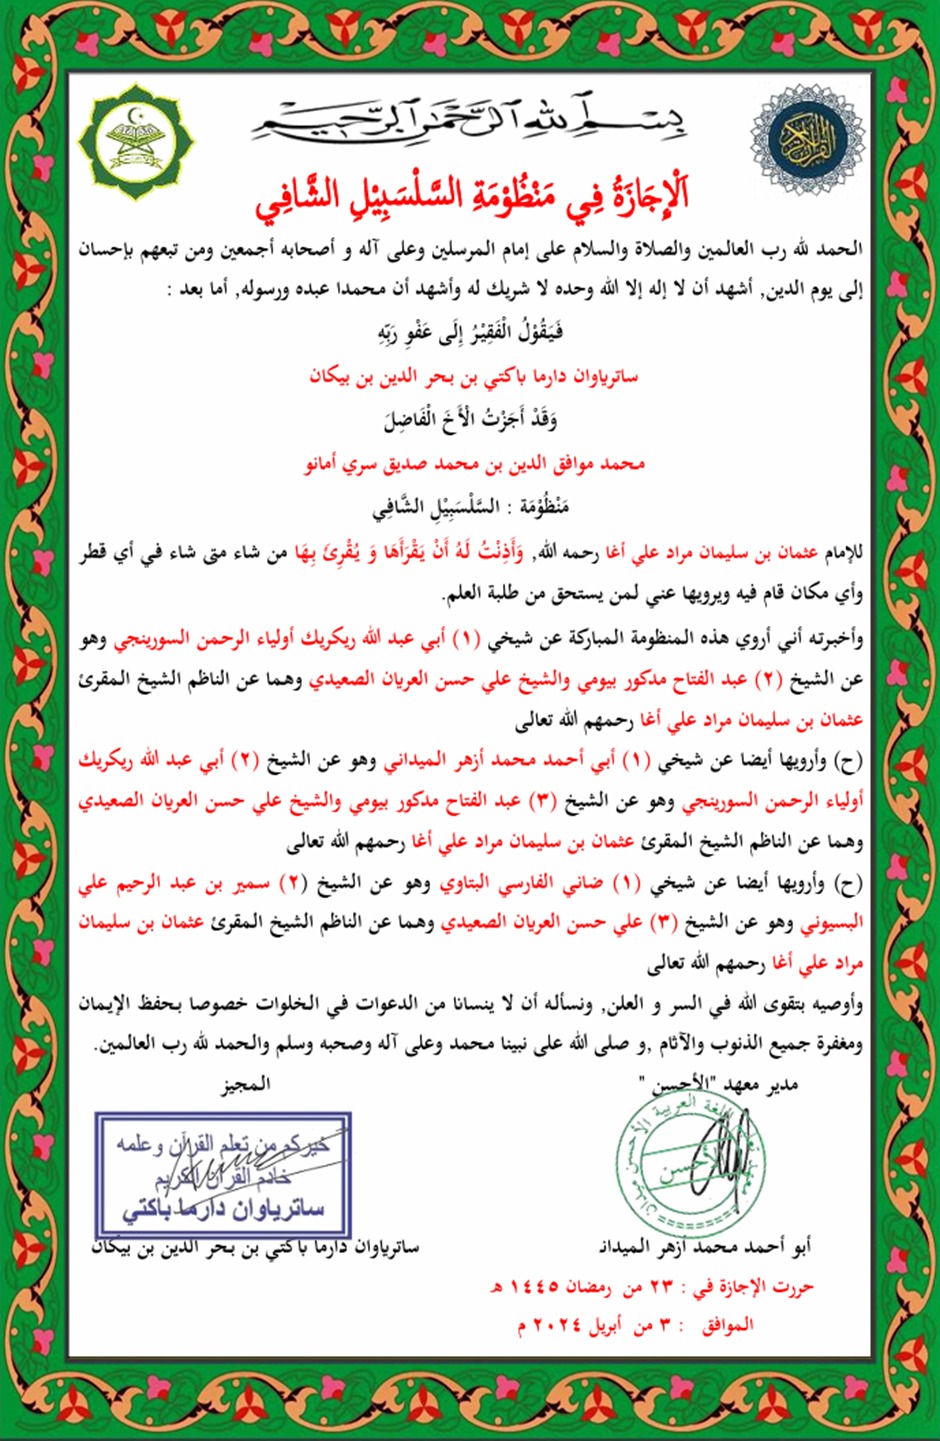 بسم الله الرحمن الرحيم
القرآن الكريم
اَلْإِجَازَةُ فِي مَنْظُوْمَةِ السَّلْسَبِيْلِ الشَّافِي
الحمد لله رب العالمين والصلاة والسلام على إمام المرسلين وعلى آله و أصحابه أجمعين ومن تبعهم بإحسان
إلى يوم الدين, أشهد أن لا إله إلا الله وحده لا شريك له وأشهد أن محمدا عبده ورسوله, أما بعد :
فَيَقُوْلُ الْفَقِيْرُ إِلَى عَفْوِ رَبِّهِ
ساترياوان دارما باكتي بن بحر الدين بن بيكان
وَقَدْ أَجَزْتُ الْأَخَ الْفَاضِلَ
محمد موافق الدين بن محمد صديق سري أمانو
مَنْظُوْمَة : السَّلْسَبِيْلِ الشَّافِي
للإمام عثمان بن سليمان مراد علي أغا رحمه الله, وَأَذِنْتُ لَهُ أَنْ يَقْرَأَهَا وَ يُقْرِئَ بِهَا من شاء متى شاء في أي قطر
وأي مكان قام فيه ويرويها عني لمن يستحق من طلبة العلم.
وأخبرته أني أروي هذه المنظومة المباركة عن شيخي (١) أبي عبد الله ريكريك أولياء الرحمن السورينجي وهو
عن الشيخ (٢) عبد الفتاح مدكور بيومي والشيخ علي حسن العريان الصعيدي وهما عن الناظم الشيخ المقرئ
عثمان بن سليمان مراد علي أغا رحمهم الله تعالى
(ح) وأرويها أيضا عن شيخي (١) أبي أحمد محمد أزهر الميداني وهو عن الشيخ (٢) أبي عبد الله ريكريك
أولياء الرحمن السورينجي وهو عن الشيخ (٣) عبد الفتاح مدكور بيومي والشيخ علي حسن العريان الصعيدي
وهما عن الناظم الشيخ المقرئ عثمان بن سليمان مراد علي أغا رحمهم الله تعالى
(ح) وأرويها أيضا عن شيخي (١) ضاني الفارسي البتاوي وهو عن الشيخ (٢) سمير بن عبد الرحيم علي
البسيوني وهو عن الشيخ (٣) علي حسن العريان الصعيدي وهما عن الناظم الشيخ المقرئ عثمان بن سليمان
مراد علي أغا رحمهم الله تعالى
وأوصيه بتقوى الله في السر و العلن, ونسأله أن لا ينسانا من الدعوات في الخلوات خصوصا بحفظ الإيمان
ومغفرة جميع الذنوب والآثام ,و صلى الله على نبينا محمد وعلى آله وصحبه وسلم والحمد لله رب العالمين.
مدير معهد "الأحسن "
المجيز
اللغة العربية الأحسن ميدان
الأحسن
خيركم من تعلم القرآن وعلمه
خادم القرآن الكريم
ساترياوان دارما باكتي
أبو أحمد محمد أزهر الميدانـ
ساترياوان دارما باكتي بن بحر الدين بن بيكان
حررت الإجازة في : ٢٣ من رمضان ١٤٤٥ هـ
الموافق : ٣ من أبريل ٢٠٢٤ م